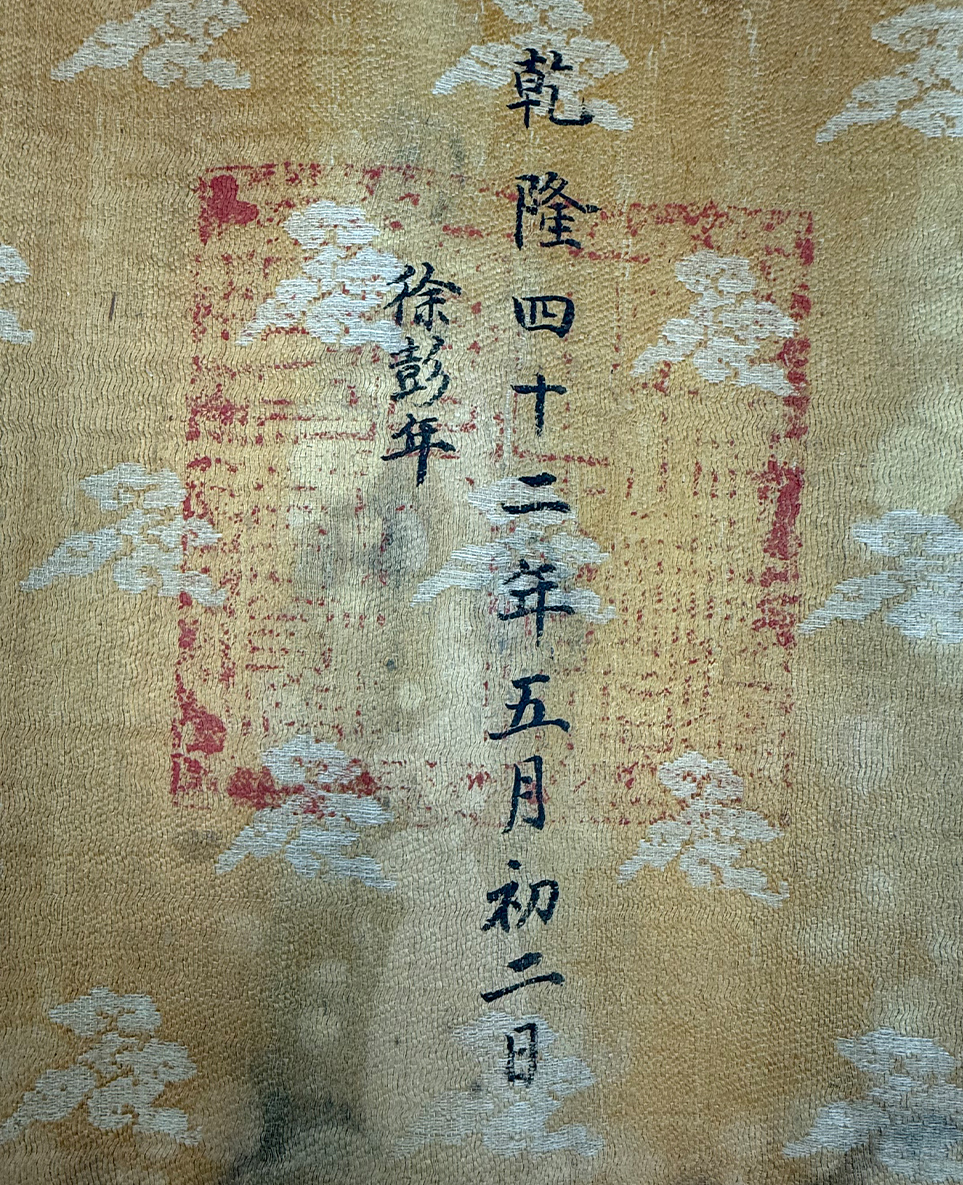 乾隆四十二年五月初二日
徐彭年